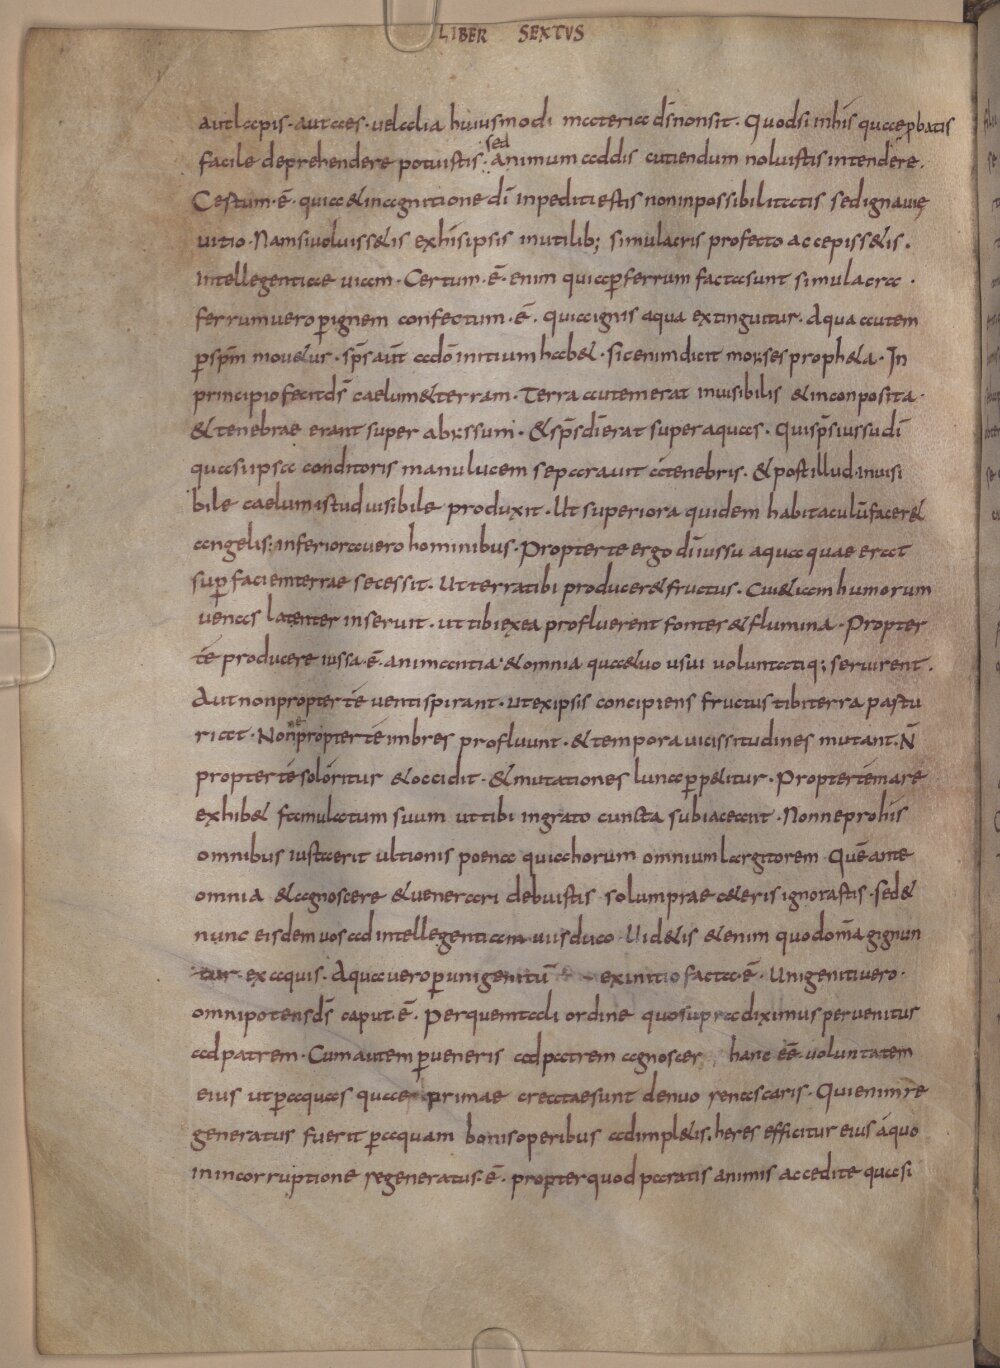 LIBER SEXTVS
aut lapis · aut aes · uel alia huiusmodi materia d̄s non sit · Quod si in his quae p̱batis
facile deprehendere potuistis · sed animum addis cutiendum noluistis intendere ·
Certum · ē · quia & in agnitione dī inpediti estis non inpossibilitatis sed ignauię
uitio · Nam si uoluiss&is ex hīs ipsis inutilib; simulacris profecto accepiss&is ·
Intellegentiae uiam · Certum · ē · enim quia ꝑ ferrum facta sunt simulacra ·
ferrum uero ꝑ ignem confectum · ē · quia ignis aqua extinguitur · Aqua autem
ꝑ sp̄m mou&ur · sp̄s aūt a dō initium hab& · sic enim dicit moyses proph&a · In
principio fecit d̄s caelum & terram · Terra autem erat inuisibilis & inconposita ·
& tenebrae erant super abyssum · & sp̄s dī erat super aquas · Qui sp̄s iussu dī
quasi ipsa conditoris manu lucem separauit a tenebris · & post illud inuisi
bile caelum istud uisibile produxit · Ut superiora quidem habitaculū facer&
angelis; inferiora uero hominibus · Propter te ergo dī iussu aqua quae erat
suꝑ faciem terrae secessit · Ut terra tibi producer& fructus · Cui &iam humorum
uenas latenter inseruit · ut tibi ex ea profluerent fontes & flumina · Propter
té producere iussa · ē · animantia · & omnia quae tuo usui uoluntatiq; seruirent ·
Aut non propter té uenti spirant · ut ex ipsis concipiens fructus tibi terra pastu
riat · Nonne propter té imbres profluunt · & tempora uicissitudines mutant · N̄
propter té sol oritur & occidit · & mutationes luna ꝑp&itur · Propter té mare
exhib& famulatum suum ut tibi ingrato cuncta subiaceant · Nonne pro his
omnibus iusta erit ultionis poena quia horum omnium largitorem Quē ante
omnia & agnoscere & uenerari debuistis solum prae c&eris ignorastis · sed &
nunc eisdem uos ad intellegentiam uiis duco · Uid&is &enim quod om̄a gignun
tur · ex aquis · Aqua uero ꝑ unigenitū ex initio facta · ē · Unigeniti uero ·
omnipotens d̄s caput · ē · Per quem tali ordine quo supra diximus peruenitur
ad patrem · Cum autem ꝑueneris ad patrem agnoscer hanc eē uoluntatem
eius ut ꝑ aquas quae primae creatae sunt denuo renascaris · Qui enim re
generatus fuerit ꝑ aquam bonis operibus adimpl&is, heres efficitur eius á quo
in incorruptione regeneratus · ē · propter quod paratis animis accedite quasi